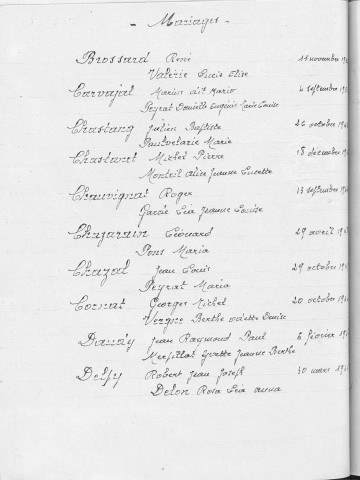 - Mariages -
Brossard René 14 novembre 19
Valérie Lucie Elise
Carvajal Marius dit Mario 4 septembre
Peyrat Danielle Eugénie Marie Louise
Chastang Julien Baptiste 26 octobre
Marie
Chastanet Michel Pierre 18 décembre
Monteil Alice Jeanne Lucette
Chauvignat Roger 13 septembre
Léa Jeanne Louise
Chazarain Léonard 29 avril 19
Pons Maria
Chazal Jean Louis 29 octobre
Peyrat Maria
Cornat Georges Michel 20 octobre
Vergne Berthe Odette Denise
Jean Raymond Paul 6 février
Yvette Jeanne Berthe
Delpy Robert Jean Joseph 30 mars 19
Delon Rosa Léa Anna